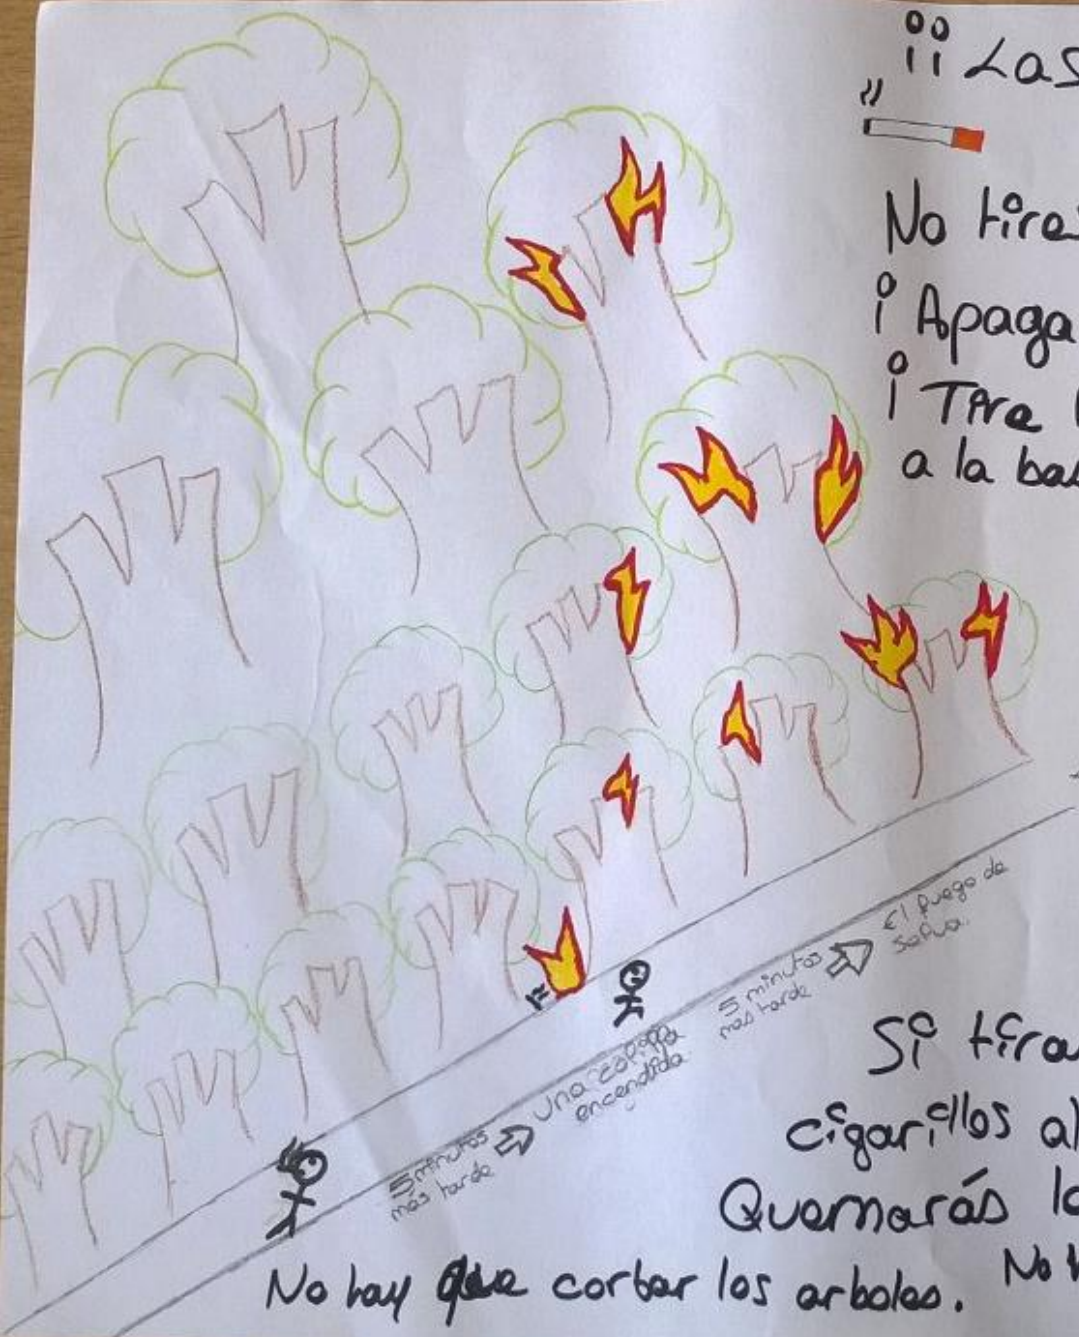 ¡¡ Las
No tire
¡ Apaga
¡ Tire
a la bas
5 minutos
más tarde
una
encendida
5 minutos
mas tarde
El fuego de
Si tira
cigarillos al
Quemarás
No hay que cortar los arboles.
No